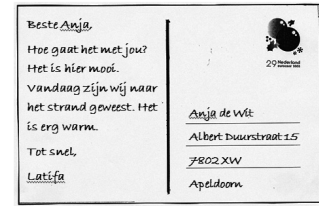 Beste Anja,
Hoe gaat het met jou?
Het is hier mooi.
Vandaag zijn wij naar
het strand geweest. Het
is erg warm.
Tot snel,
Latifa
29 Nederland
Anja de Wit
Albert Duurstraat 15
7802 XW
Apeldoorn